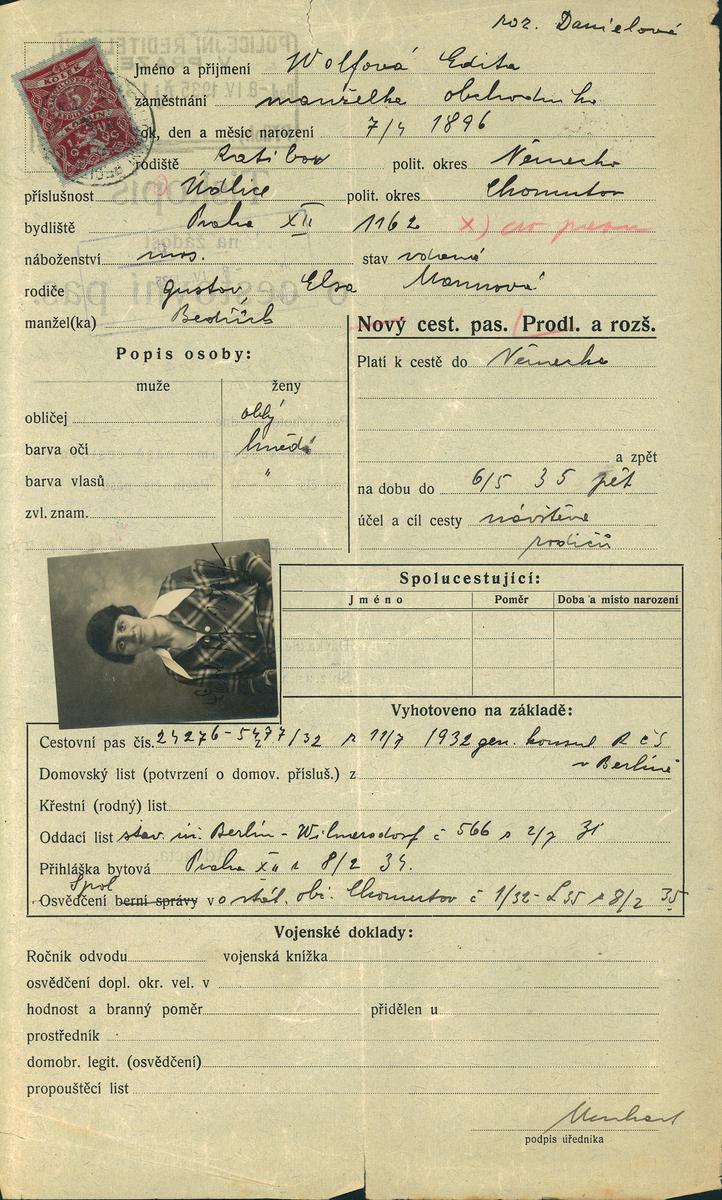 roz. Danielová
KOLEK
5
Jméno a příjmení Wolfová Edita
zaměstnání manželka obchodníka
rok, den a měsíc narození 7/4 1896
rodiště Ratibor polit. okres Německo
příslušnost Údlice polit. okres Chomutov
bydliště Praha XII 1162 x)
náboženství mos. stav vdaná
rodiče Gustav, Elsa Mannová
manžel(ka) Bedřich
Nový cest. pas. Prodl. a rozš.
Popis osoby:
Platí k cestě do Německa
muže ženy
obličej oblý
barva očí hnědé
barva vlasů "
zvl. znam.
a zpět
na dobu do 6/5 35 pět
účel a cíl cesty návštěva
rodičů
Spolucestující:
Jméno Poměr Doba a místo narození
Vyhotoveno na základě:
Cestovní pas čís. 24276-5477/32 z 11/7 1932 gen. konsul R čs
v Berlíně
Domovský list (potvrzení o domov. přísluš.) z
Křestní (rodný) list
Oddací list stav. in. Berlín - Wilmersdorf č 566 z 2/7 31
Přihláška bytová Praha XII z 8/2 34.
Spol
Osvědčení berní správy v o stát. obč. Chomutov č 1/32- z 8/2 35
Vojenské doklady:
Ročník odvodu vojenská knížka
osvědčení dopl. okr. vel. v
hodnost a branný poměr přidělen u
prostředník
domobr. legit. (osvědčení)
propouštěcí list
podpis úředníka